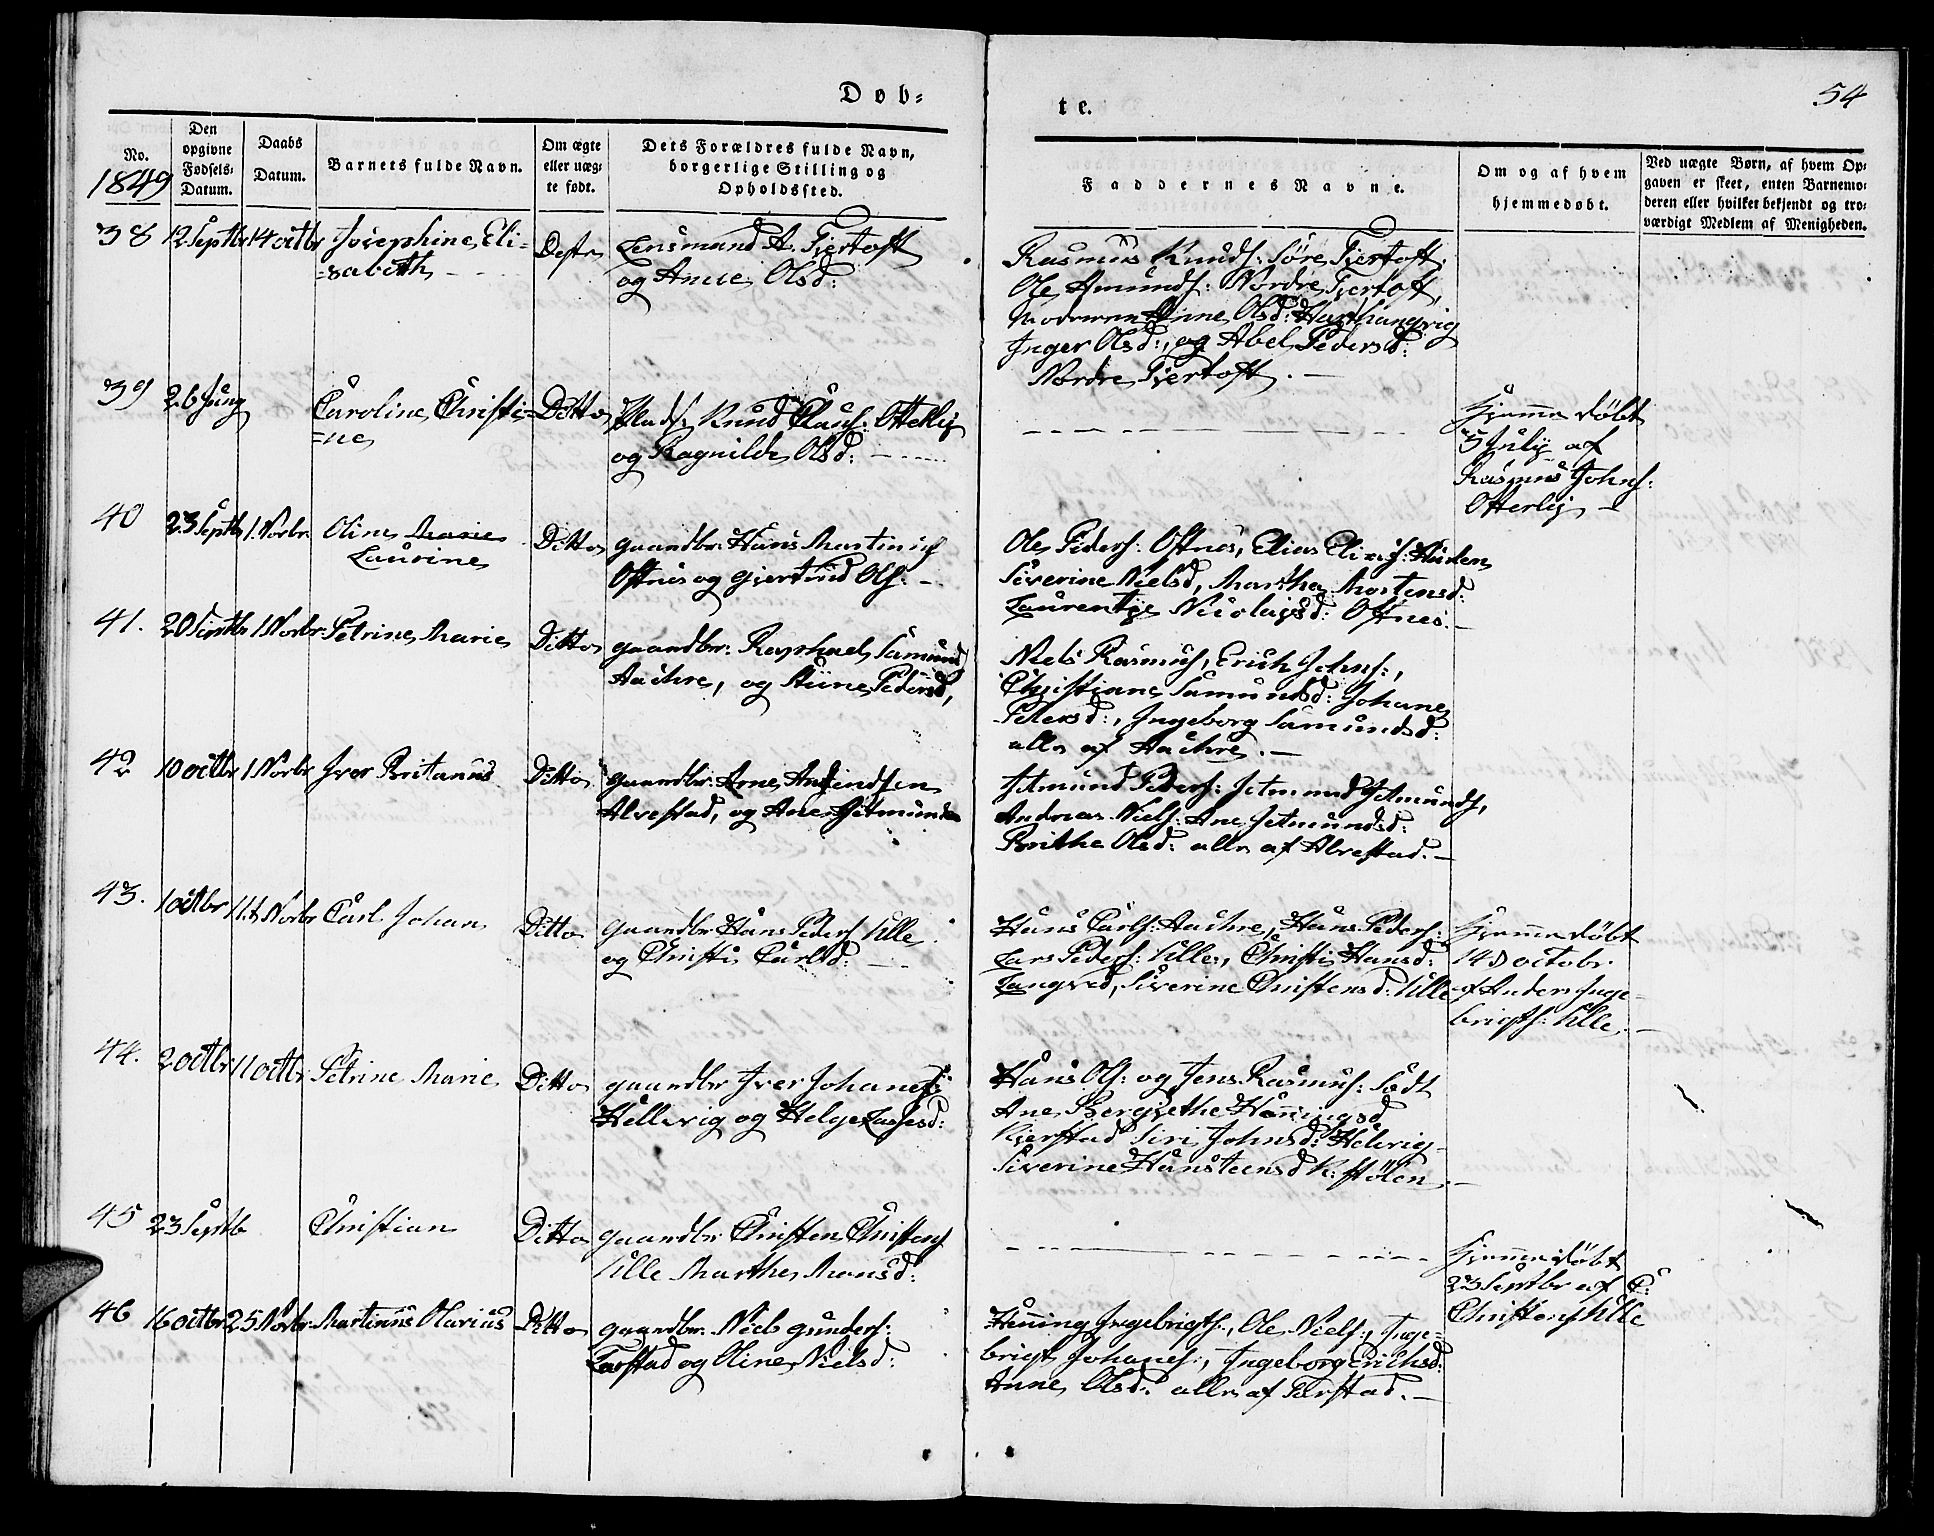 Døb=
te.
54
No.
1849
Den
opgivne
Fødsels-
Datum.
Daabs
Datum.
Barnets fulde Navn.
Om ægte
eller uæg-
te født.
Dets Forældres fulde Navn,
borgerlige Stilling og
Opholdssted.
Faddernes Navne.
Om og af hvem
hjemmedøbt.
Ved uægte Børn, af hvem Op-
gaven er skeet, enten Barnemo-
deren eller hvilket bekjendt og tro-
værdigt Medlem af Menigheden.
38 12 Septbr 14 octbr Josephine Eli=
=sabeth
Lensmand A. Fjertoft
og Anne Olsd:
Rasmus Knuds: Søre Fjertoft.
Ole Amunds: Nordre Fjertoft,
Anne Olsd:
Inger Olsd:, og Abel Pedersd:
Nordre Fjertoft. —
39 26 Juny Caroline Christi=
=ne
Ditto
Knud Claus: Otterlig
og Ragnilde Olsd:
Hjemmedøbt
5 July af
Rasmus Johns:
Otterlig
40 23 Septb 1. Novbr. Oline Marie
Laurine
Ditto gaardbr: Hans Martinus
Oftnes og Giertrud Ols: —
Ole Peders: Oftnes, Elias Elias:
Siverine Nielsd, Marthe Mortensd:
Laurentze Nicolaysd: Oftnes. —
41. 20 Septb 1 Novbr. Petrine Marie Ditto gaardbr: Raphael Samunds
Aachre, og Stine Pedersd,
Niels Rasmus, Erich Johns:,
Christiane Samundsd: Johane
Petersd:, Ingeborg Samundsd:
alle af Aachre. —
42 10 octbr 1 Novbr Iver Britanus Ditto gaardbr: Arne Amundsen
Alvestad, og Ane Jetmunds
Jetmund Peders: Jetmund Jetmunds,
Andreas Niels: Ane Jetmundsd:
Brithe Olsd: alle af Alvestad. —
43. 1 octbr 11t Novbr Carl Johan Ditto gaardbr Hans Peders Ulle
og Christi Carlsd:
Hans Carls: Aachre, Hans Peders:
Lars Peders: Ulle, Christi Hansd:
Langved, Siverine Christensd: Ulle
Hjemmedøbt
14 D octobr.
af Anders Inge=
brigts: Ulle. —
44. 2 octbr 11 octbr Petrine Marie Ditto gaardbr Iver Johanes:
Hellevig og Helge Lassesd:
Hans Ols: og Jens Rasmus: Sædt
Ane Bergjethe Henningsd
Kierstad Siri Johnsd: Helevig
Siverine Hansteensd K: stølen
45 23 Septb Christian Ditto gaardbr Christen Christens
Ulle Marthe Monsd:
Hjemmedøbt
23 Septbr af C:
Christens Ulle
46 16 octbr 25 Novbr. Martinus Olarius Ditto gaardbr Niels Gunders:
Farstad og Oline Nielsd:
Henning Ingebrigts:, Ole Niels:, Inge=
brigt Johanes:, Ingeborg Erichsd:
Anne Olsd: alle af Farstad. —